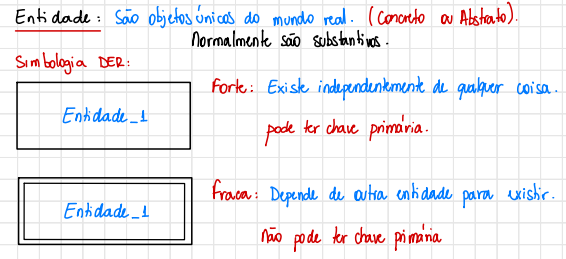 Entidade: São objetos únicos do mundo real. (Concreto ou Abstrato).
Normalmente são substantivos.
Simbologia DER:
Forte: Existe independentemente de qualquer coisa.
Entidade_1
pode ter chave primária.
Fraca: Depende de outra entidade para existir.
Entidade_1
Não pode ter chave primária